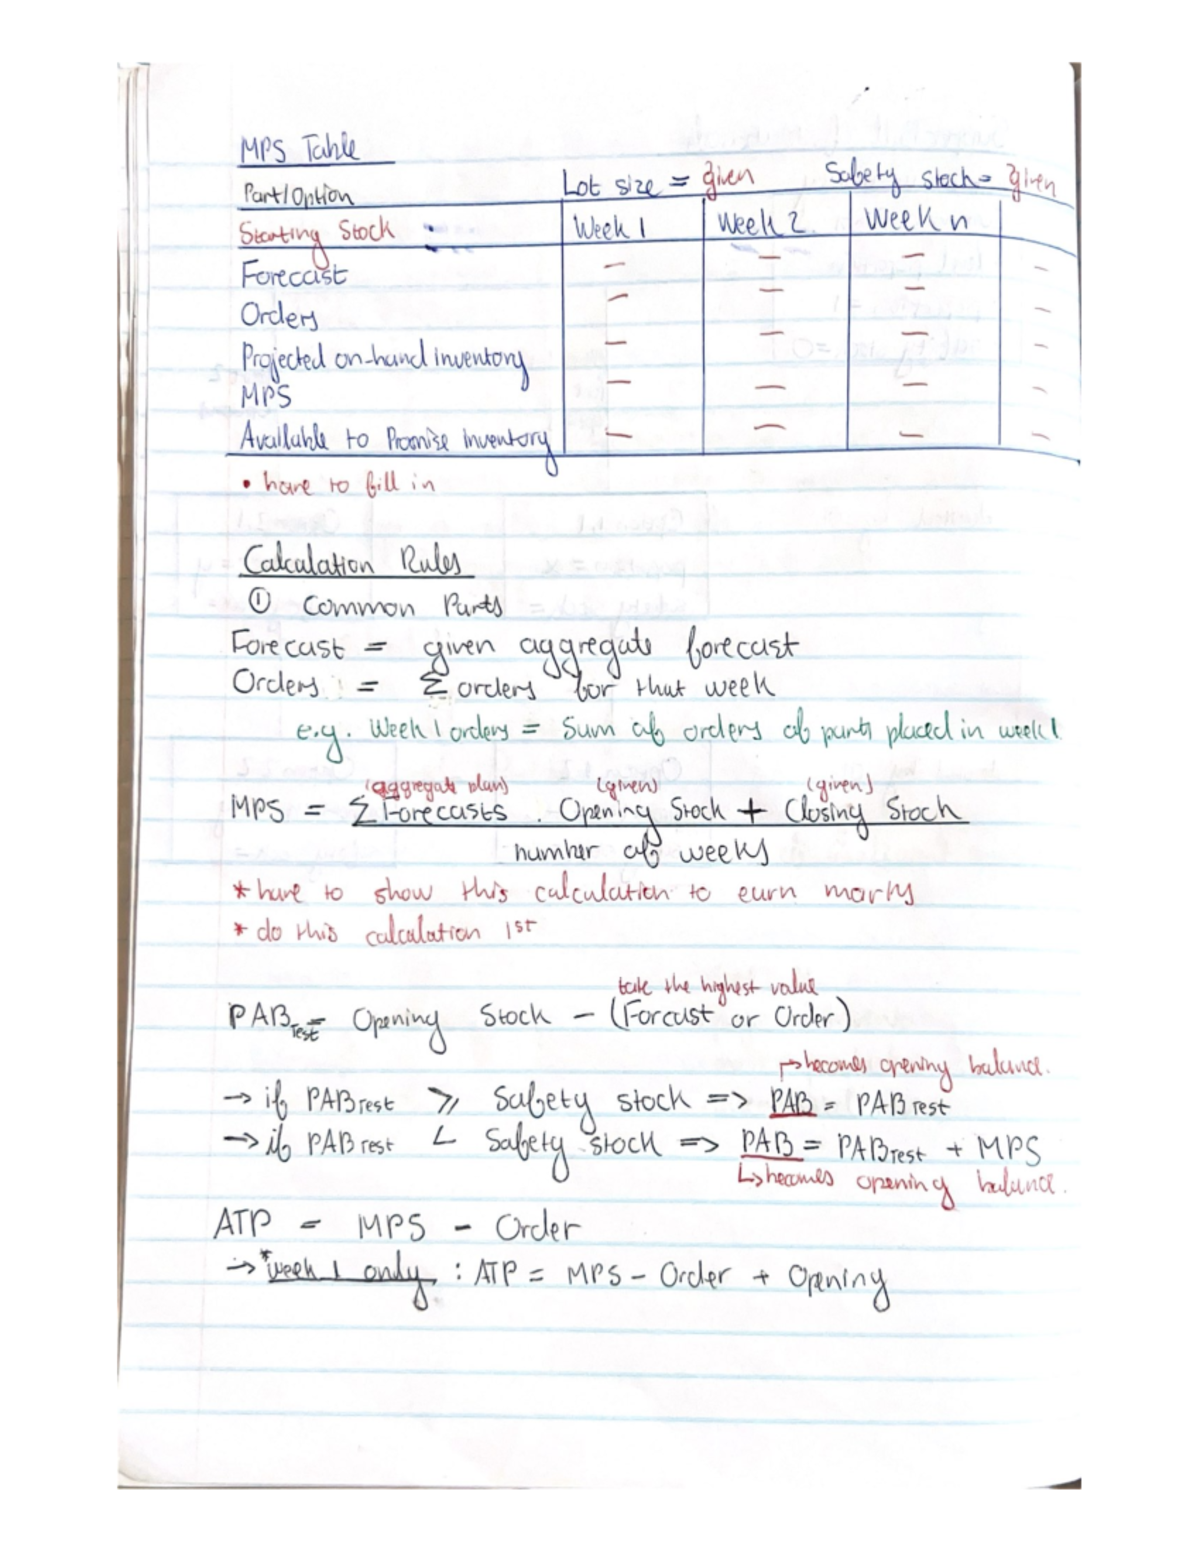 MPS Table
Part/Option Lot size = given Safety stock = given
Starting Stock Week 1 Week 2 Week n
Forecast – – – –
Orders – – – –
Projected on-hand inventory – – – –
MPS – – – –
Available to Promise Inventory – – – –
• have to fill in
Calculation Rules
① Common Parts
Forecast = given aggregate forecast
Orders = Σ orders for that week
e.g. Week 1 orders = Sum of orders of parts placed in week 1
(aggregate plan) (given) (given)
MPS = Σ Forecasts - Opening Stock + Closing Stock
number of weeks
* have to show this calculation to earn marks
* do this calculation 1st
take the highest value
PABTest = Opening Stock – (Forcast or Order)
↳ becomes opening balance.
→ if PABTest ⩾ Safety stock => PAB = PABTest
→ if PABTest < Safety stock => PAB = PABTest + MPS
↳ becomes opening balance.
ATP = MPS - Order
→ *week 1 only : ATP = MPS - Order + Opening